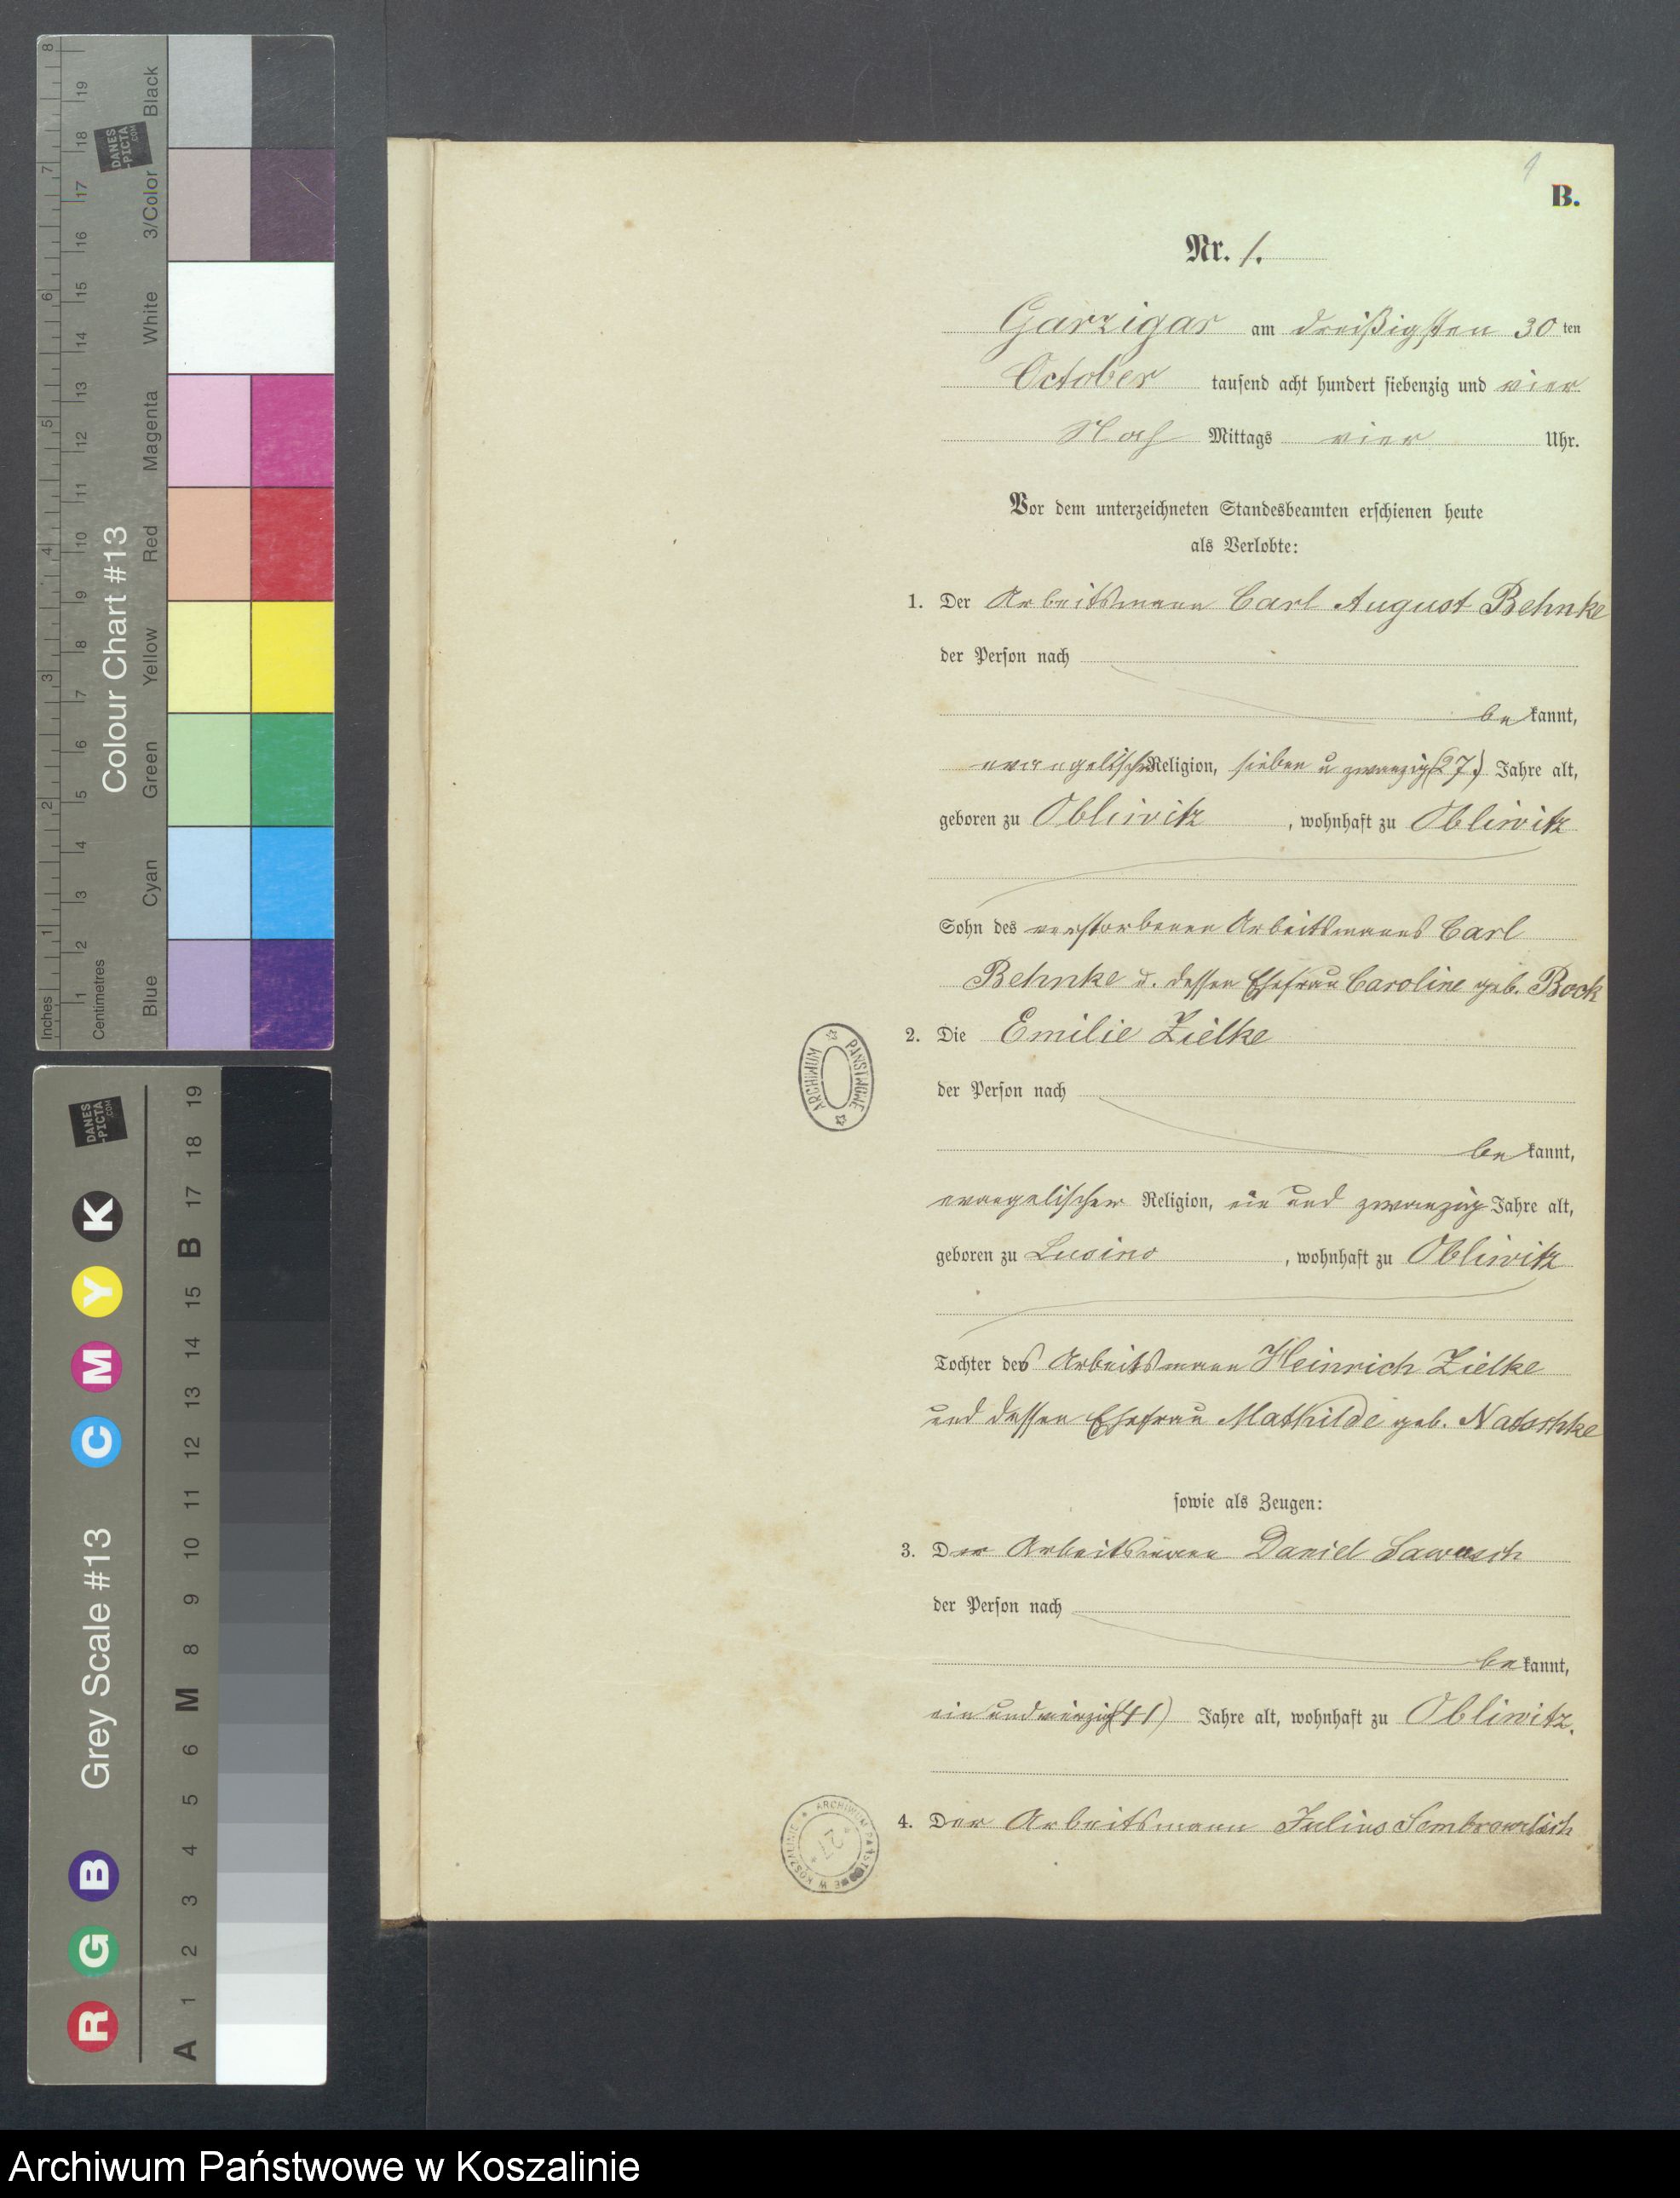 B.
Nr. 1.
Garzigar am dreißigsten 30 ten
October tausend acht hundert siebenzig und vier
Nach Mittags vier Uhr.
Vor dem unterzeichneten Standesbeamten erschienen heute
als Verlobte:
1. Der Arbeitsmann Carl August Behnke
der Person nach
be kannt,
evangelischer Religion, sieben u zwanzig (27) Jahre alt,
geboren zu Obliwitz, wohnhaft zu Obliwitz
Sohn des verstorbenen Arbeitsmanns Carl
Behnke u. dessen Ehefrau Caroline geb. Bock
2. Die Emilie Zielke
der Person nach
be kannt,
evangelischer Religion, ein und zwanzig Jahre alt,
geboren zu Lusino, wohnhaft zu Obliwitz
Tochter des Arbeitsmann Heinrich Zielke
und dessen Ehefrau Mathilde geb.
sowie als Zeugen:
3. Der Arbeitsmann Daniel
der Person nach
be kannt,
ein und vierzig (41) Jahre alt, wohnhaft zu Obliwitz.
4. Der Arbeitsmann Julius
ARCHIWUM PAŃSTWOWE
ARCHIWUM PAŃSTWOWE W KOSZALINIE
27
Colour Chart #13
Black
3/Color
White
Magenta
Red
Yellow
Green
Cyan
Blue
Inches
Centimetres
1 2 3 4 5 6 7 8
1 2 3 4 5 6 7 8 9 10 11 12 13 14 15 16 17 18 19
DANES
-PICTA
.COM
Grey Scale #13
DANES
-PICTA
.COM
R G B C M Y K
A 1 2 3 4 5 6 M 8 9 10 11 12 13 14 15 B 17 18 19
Archiwum Państwowe w Koszalinie